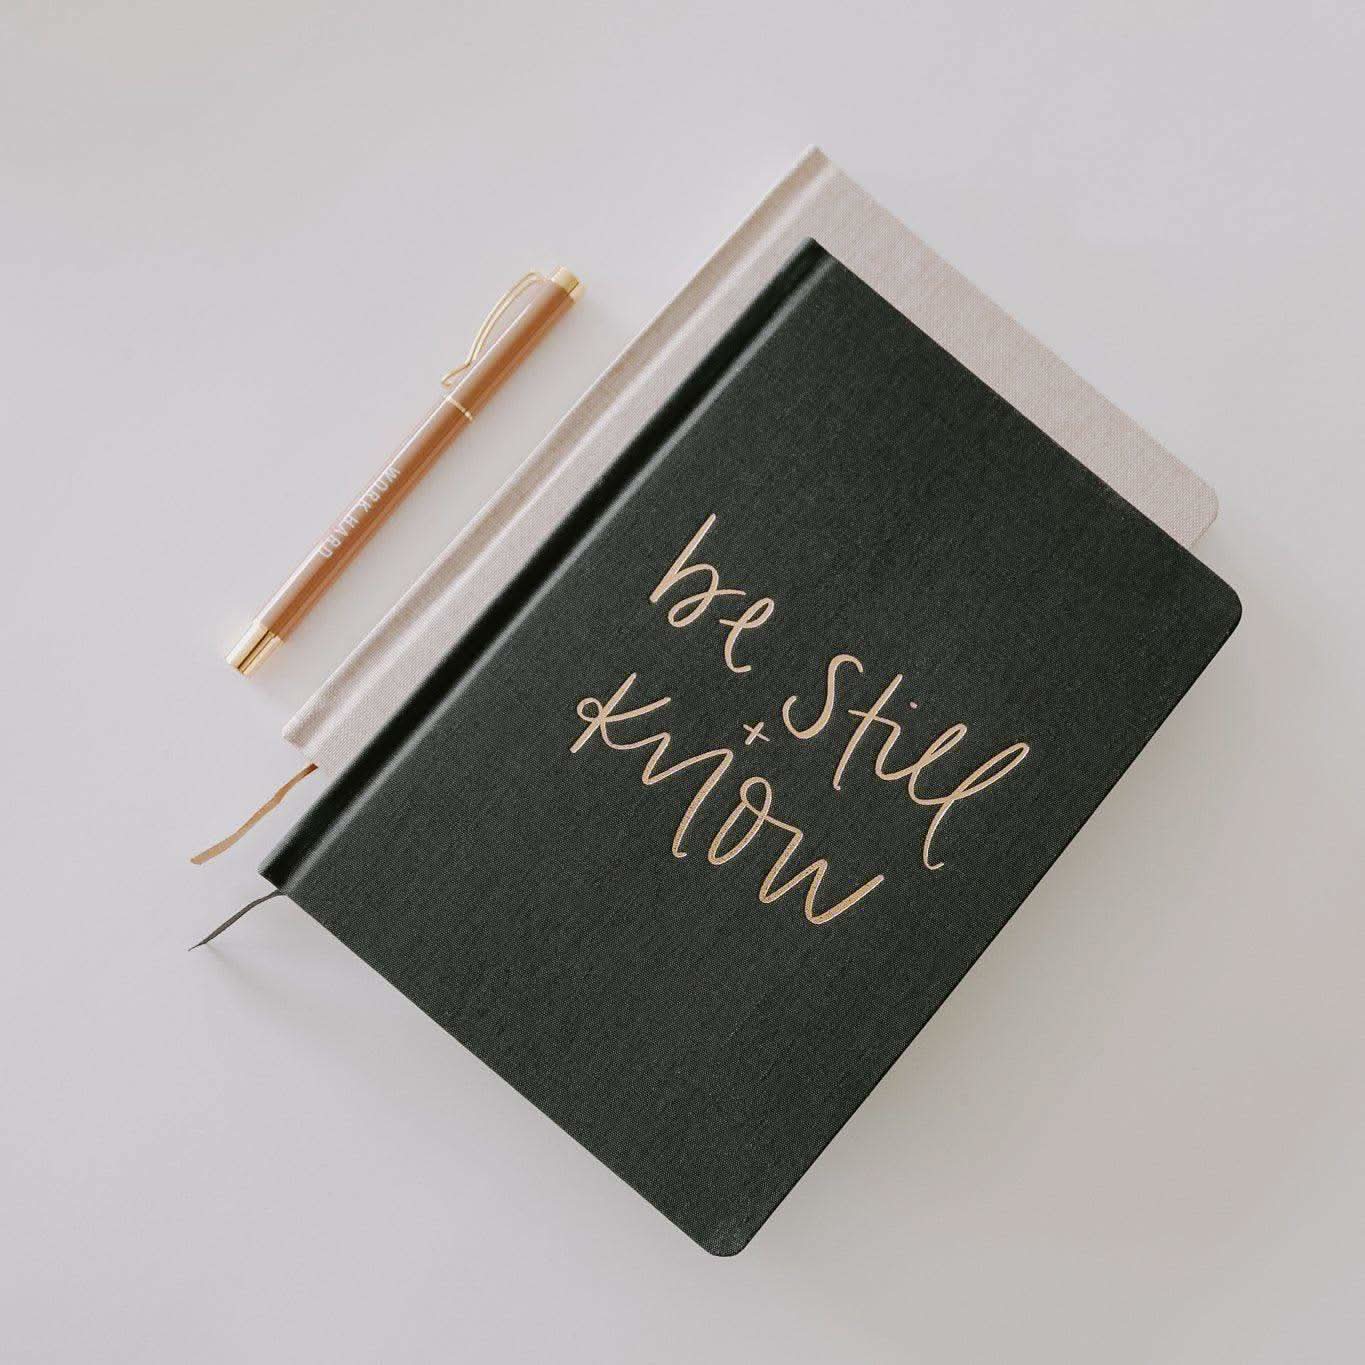 be still
+
know
WORK HARD